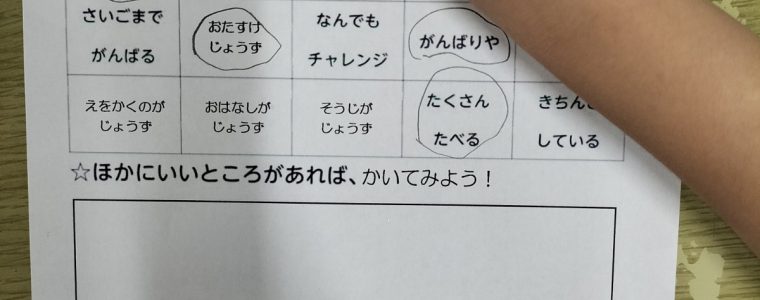 さいごまで
がんばる
おたすけ
じょうず
なんでも
チャレンジ
がんばりや
えをかくのが
じょうず
おはなしが
じょうず
そうじが
じょうず
たくさん
たべる
している
☆ほかにいいところがあれば、かいてみよう！